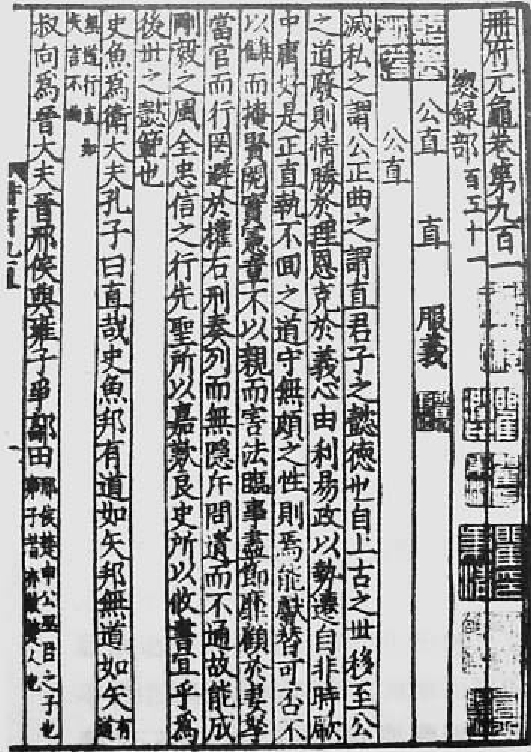 冊府元龜卷第九百一
總録部 百五十一
公直 直 服義
公直
滅私之謂公正曲之謂直君子之懿德也自上古之世移至公
之道廢則情勝於理恩克於義心由利易政以勢遷自非時歐
中庸好是正直執不回之道守無頗之性則焉能獻替可否不
以雠而掩賢閱實憲章不以親而害法臨事盡飾靡顧於妻孥
當官而行罔避於權右刑奏列而無隱斥問遺而不通故能成
剛毅之風全忠信之行先聖所以嘉歎良史所以收書宜乎爲
後世之懿範也
史魚爲衛大夫孔子曰直哉史魚邦有道如矢邦無道如矢 有道
無道行直如矢言不曲
叔向爲晉大夫晉邢侯與雍子爭鄐田 邢侯楚申公巫臣之子也雍子昔亦楚人也